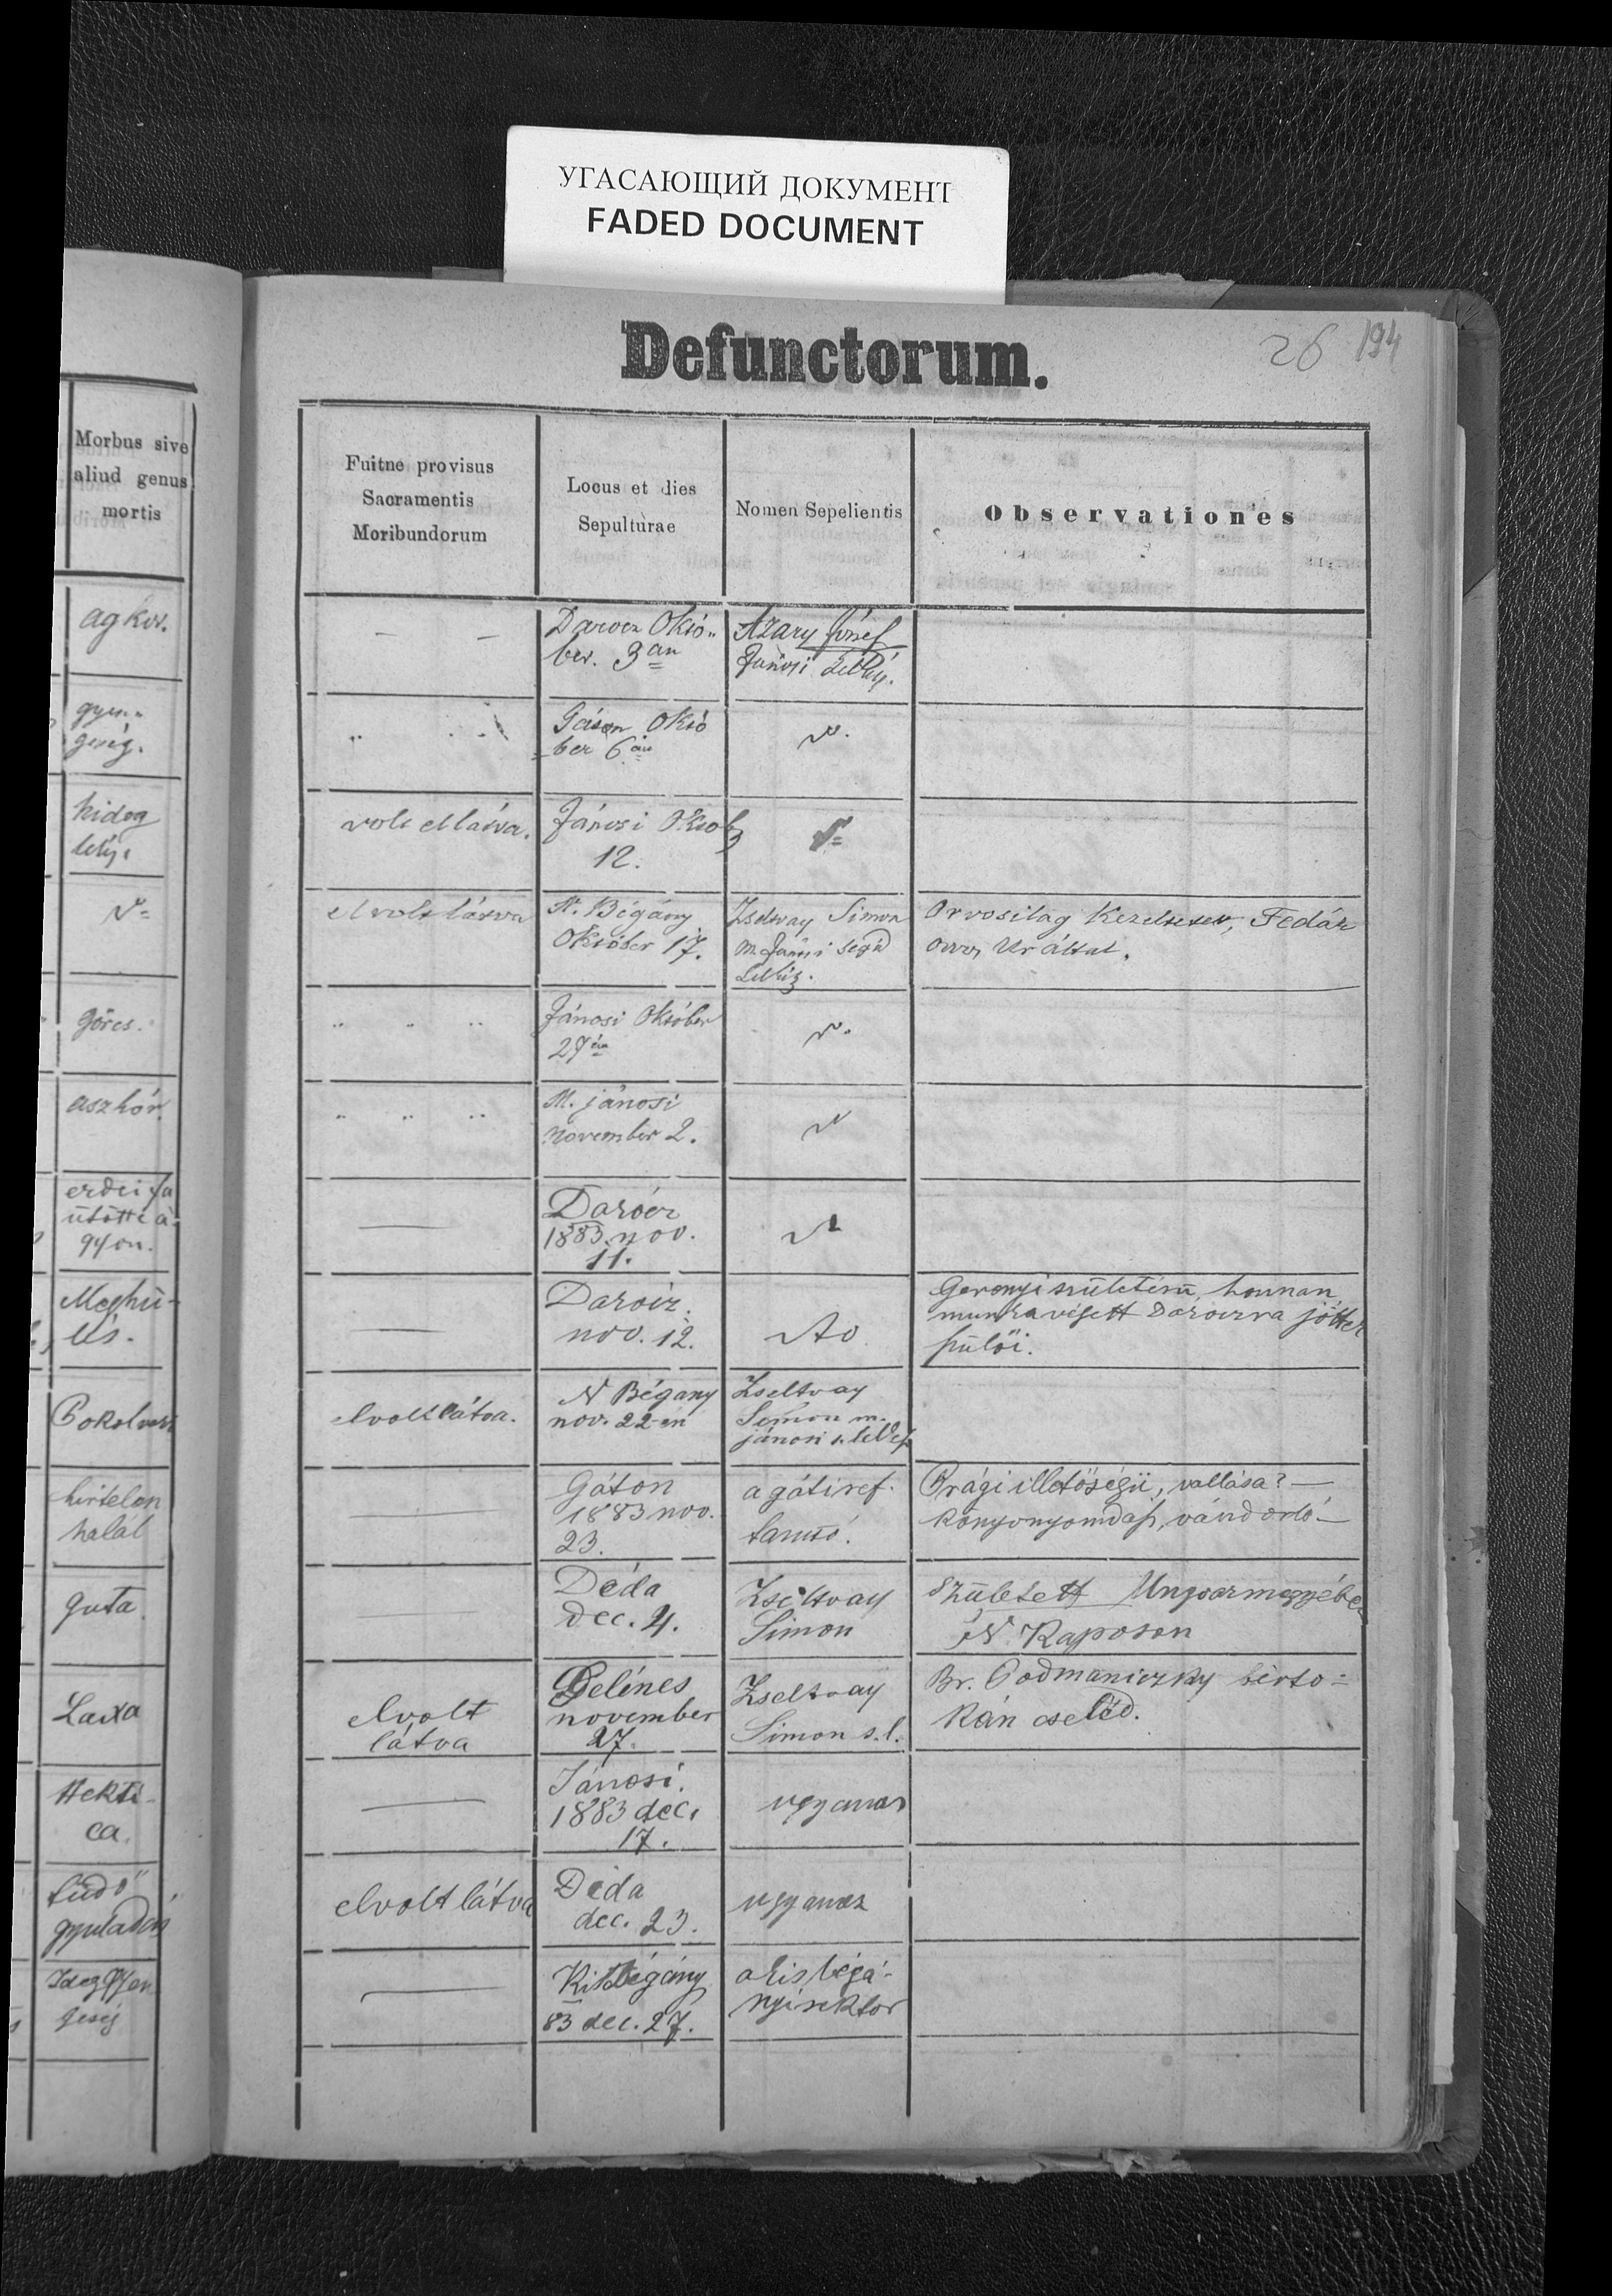 УГАСАЮЩИЙ ДОКУМЕНТ
FADED DOCUMENT
Defunctorum.
26 194
Morbus sive
aliud genus
mortis
Fuitne provisus
Sacramentis
Moribundorum
Locus et dies
Sepulturae
Nomen Sepelientis
Observationes
agkór.
— —
Darócz Októ„
ber. 3án
Azary József
Jánosi
gyen„
geség.
Gáton Októ
ber 6án
N.
hideg
lelés
volt ellátva.
Jánosi Októb
12.
N=
N=
el volt látva
N. Bégány
Október 17.
Zseltvay Simon
M. Jánosi segéd
Orvosilag Kezeltetett, Fedák
orvos Ur által.
görcs.
„ „ „
Jánosi Október
27én
N.
aszkór.
„ „ „
M. jánosi
november 2.
N
erdei fa
ütötte a
gyon.
—
Darócz
1883. nov.
11.
N
Meghü-
lés.
—
Darócz.
nov. 12.
No
Geronyi születésü, honnan
munka végett Daroczra jöttek
szülői.
elvolt látva.
N Bégany
nov. 22-én
Zseltvay
Simon m.
jánosi s.
hirtelen
halál
—
Gáton
1883 nov.
23.
a gáti ref.
tanitó.
Prági illetőségü, vallása? —
könyvnyomdász, vándorló —
guta
—
Déda
dec. 4.
Zseltvay
Simon
született Ungvarmegyében
N. Kaposon
Laxa
elvolt
látva
Belénes
november
27.
Zseltvay
Simon s.l.
Br. Podmaniczky birto=
kán cseléd.
Hekti-
ca.
—
Jánosi.
1883 dec.
17.
ugyanaz
tüdő
gyuladás
elvolt látva
Déda
dec. 23.
ugyanaz
Ideggyen
geség
—
Kisbégány
83 dec. 27.
a kisbégá-
nyi rektor